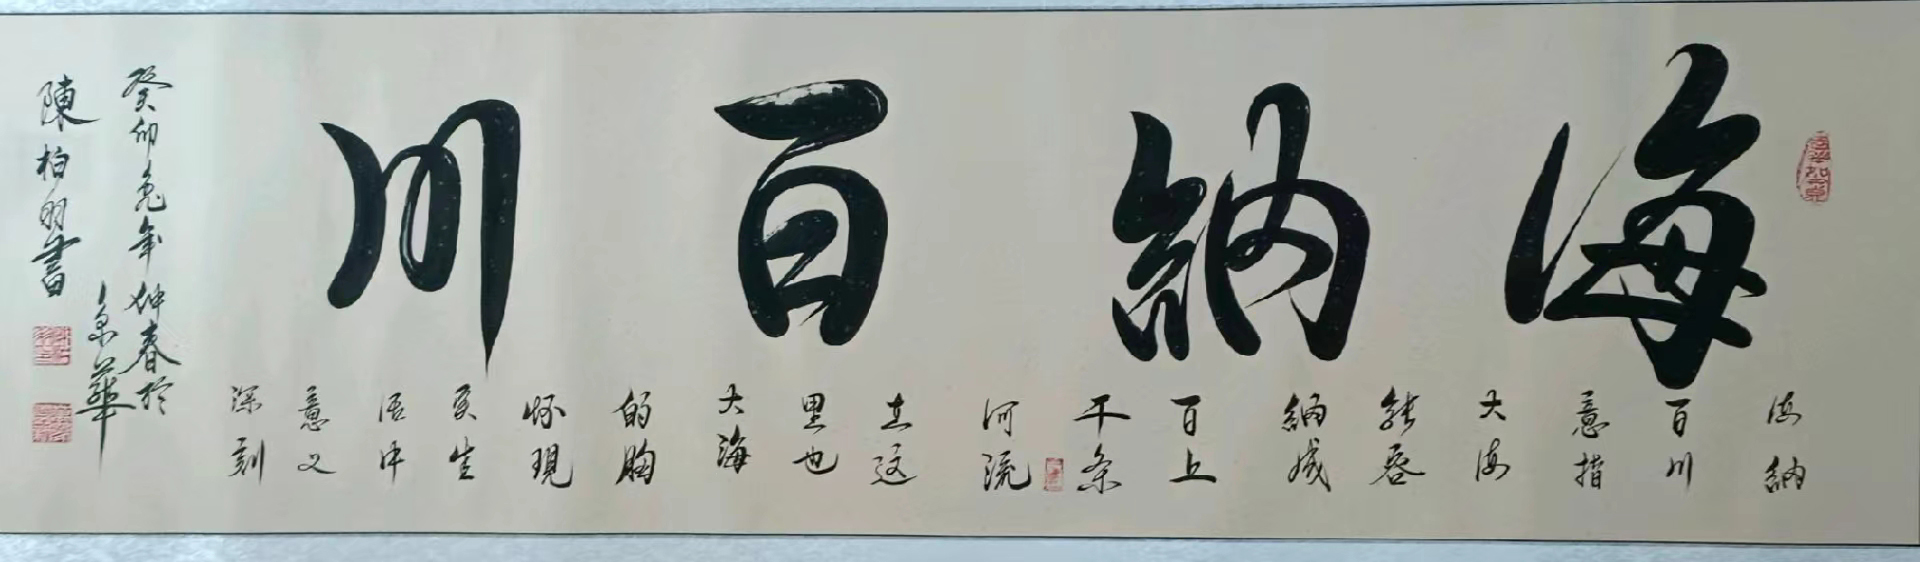 海納百川
海納
百川
意指
大海
能容
納成
百上
千条
河流
在这
里也
大海
的胸
怀現
实生
活中
意义
深刻
癸卯兔年仲春於
京華
陳柏書